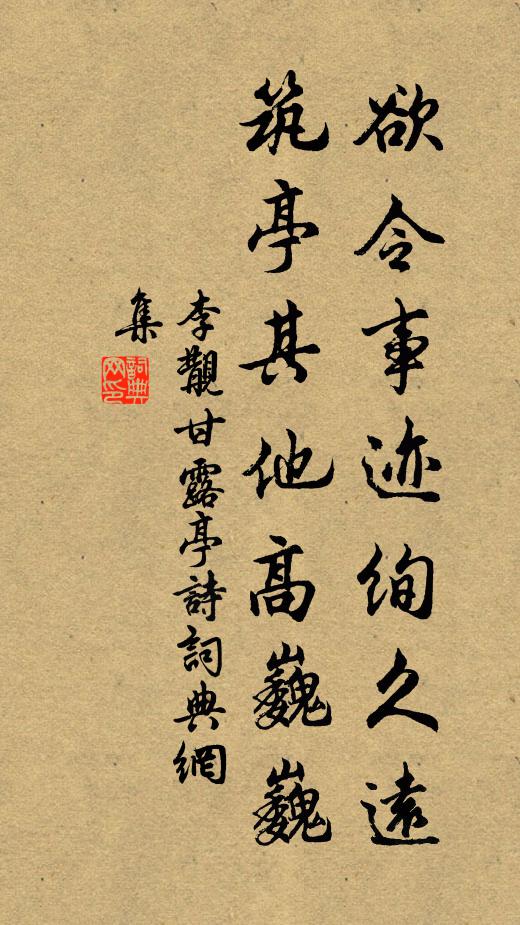 欲令事迹绚久遠
筑亭其他高巍巍
李覯甘露亭詩詞典網
集
詞典網印